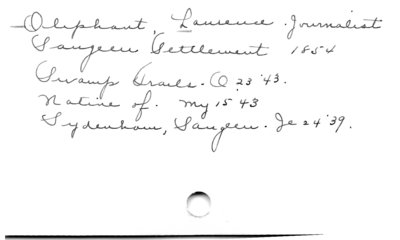 Oliphant, Laurence. Journalist
Saugeen Settlement 1854
Swamp Trails. O 23 '43.
Native of. My 15 43
Sydenham, Saugeen. Je 24 '39.